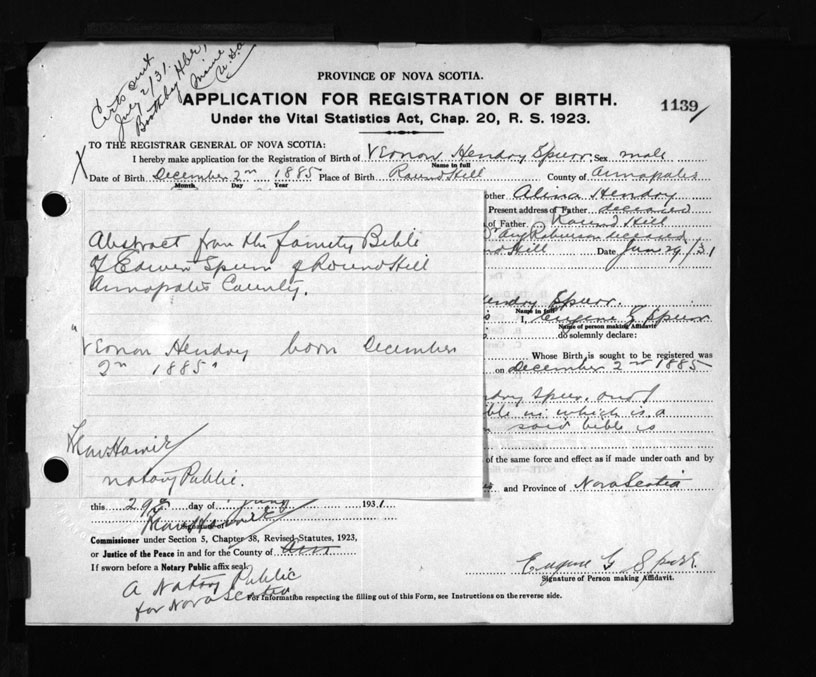 Certs sent
July 2/31.
Boothbay Hbr,
Maine
U.S.A.
PROVINCE OF NOVA SCOTIA.
APPLICATION FOR REGISTRATION OF BIRTH.
1139
Under the Vital Statistics Act, Chap. 20, R. S. 1923.
TO THE REGISTRAR GENERAL OF NOVA SCOTIA:
I hereby make application for the Registration of Birth of Vernon Hendry Spurr Sex male
Name in full
X Date of Birth December 2nd 1885 Place of Birth Round Hill County of Annapolis
Month Day Year
other Alina Hendry
Present address of Father deceased
of Father Round Hill
deceased
nd Hill Date Jun 29/31
endry Spurr.
Name in full
I, Eugene G Spurr
Name of person making Affidavit
do solemnly declare:
Whose Birth is sought to be registered was
on December 2nd 1885
dry Spurr. and I
ible in which is a
said bible is
of the same force and effect as if made under oath and by
and Province of Nova Scotia
Abstract from the family Bible
of Edwin Spurr of Round Hill
Annapolis County.
" Vernon Hendry born December
2nd 1885"
Notary Public.
this 29th day of June 1931
Commissioner under Section 5, Chapter 38, Revised Statutes, 1923,
or Justice of the Peace in and for the County of Ann
If sworn before a Notary Public affix seal.
A Notary Public
for Nova Scotia
Eugene G Spurr
Signature of Person making Affidavit.
For information respecting the filling out of this Form, see Instructions on the reverse side.